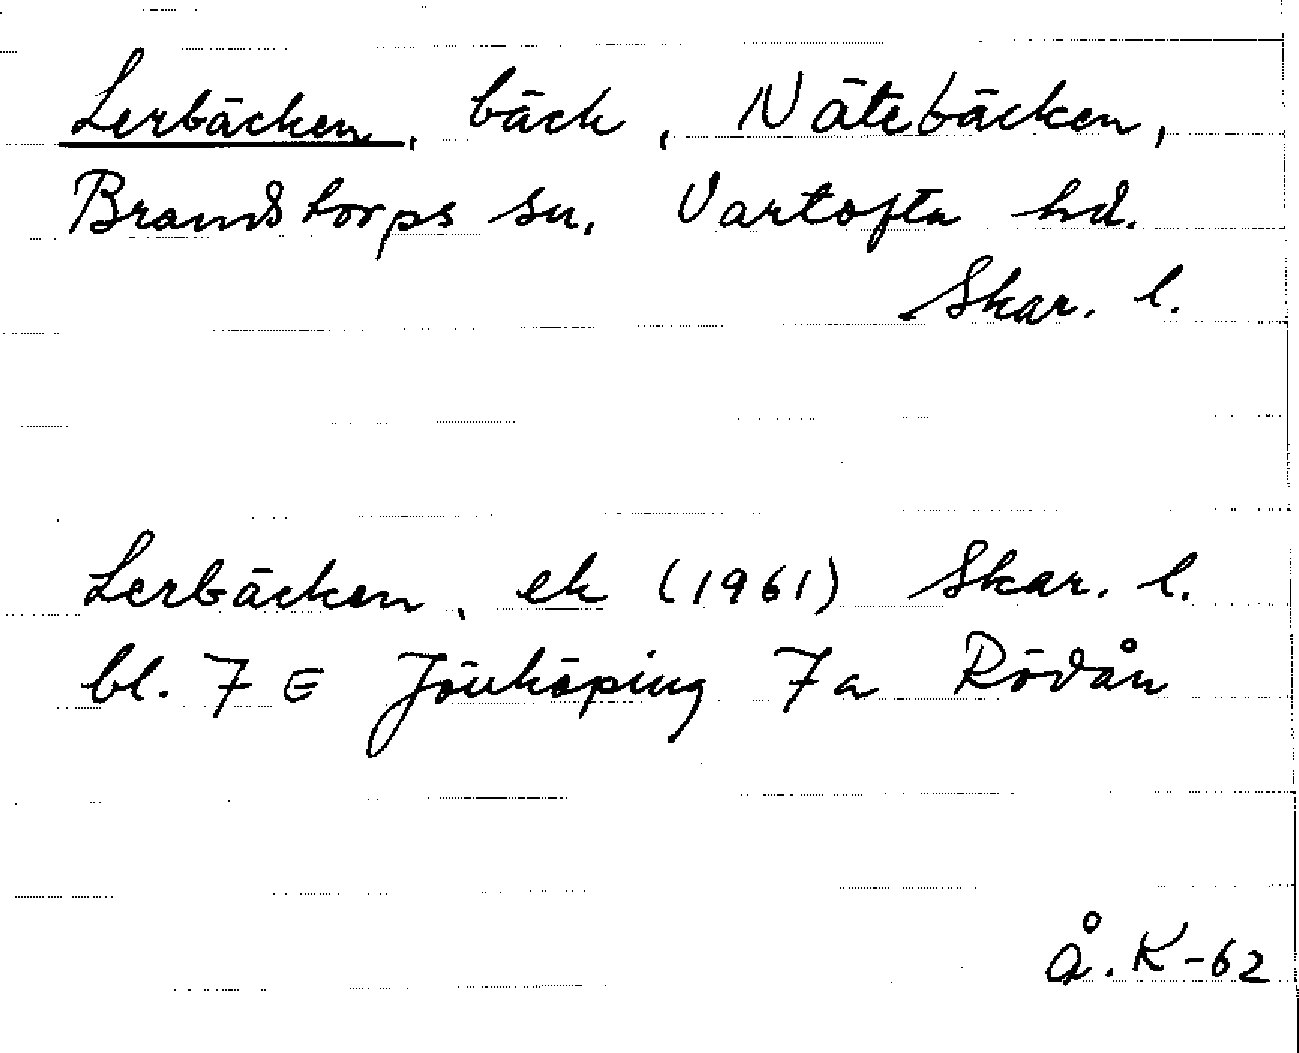 Lerbäcken, bäck, Nätebäcken,
Brandstorps sn. Vartofta hd.
Skar. l.
Lerbäcken, ek (1961) Skar. l.
bl. 7 E Jönköping 7a Rödån
Å. K-62